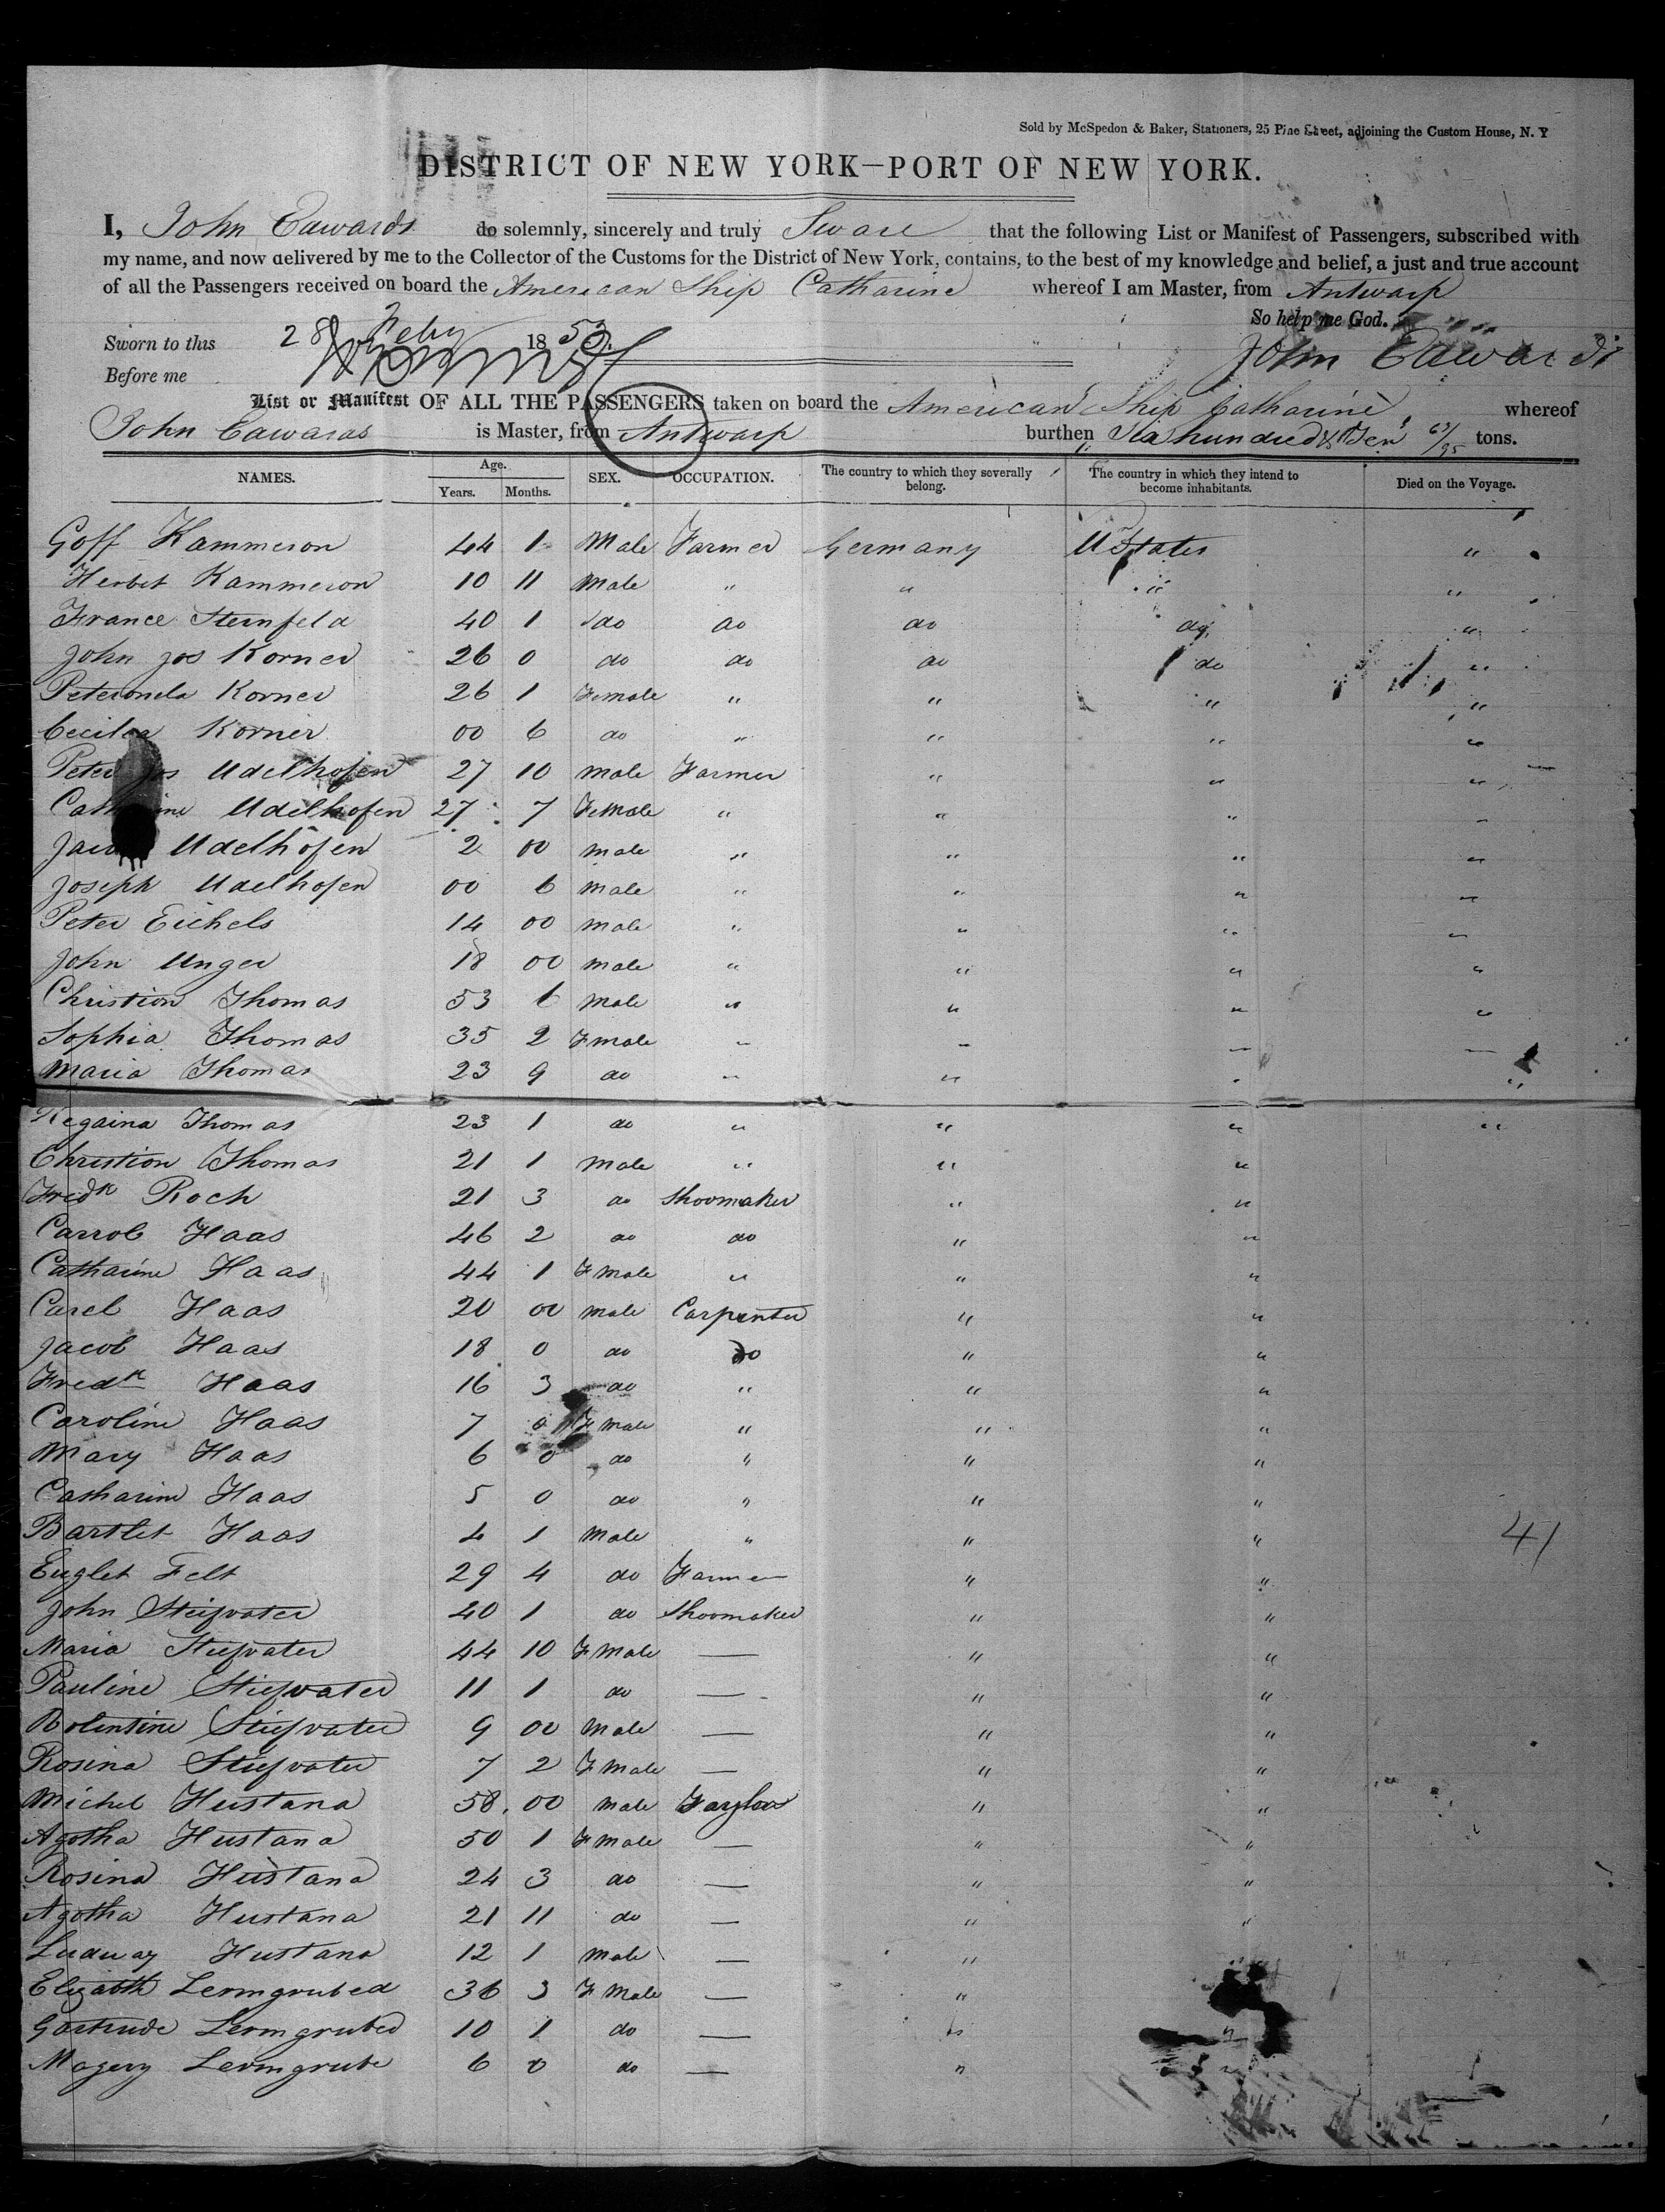 Sold by McSpedon & Baker, Stationers, 25 Pine Street, adjoining the Custom House, N. Y
DISTRICT OF NEW YORK—PORT OF NEW YORK.
I, John Edwards do solemnly, sincerely and truly Swear that the following List or Manifest of Passengers, subscribed with
my name, and now delivered by me to the Collector of the Customs for the District of New York, contains, to the best of my knowledge and belief, a just and true account
of all the Passengers received on board the American Ship Catharine whereof I am Master, from Antwarp
So help me God.
Sworn to this 28 Feby 1853.
John Edwards
Before me
List or Manifest OF ALL THE PASSENGERS taken on board the American Ship Catharine, whereof
John Edwards is Master, from Antwarp burthen Six hundred & Ten 63/95 tons.
NAMES. Age. Years. Months. SEX. OCCUPATION. The country to which they severally belong. The country in which they intend to become inhabitants. Died on the Voyage.
Goff Kammeron 44 1 Male Farmer Germany U States "
Herbet Kammeron 10 11 Male " " " "
France Steinfeld 40 1 do do do do "
John Jos Korner 26 0 do do do do "
Peteronela Korner 26 1 Female " " " "
Cecilea Korner 00 6 do " " " "
Peter Jos Udelhofen 27 10 male Farmer " " "
Catharine Udelhofen 27 7 Female " " " "
Jacob Udelhofen 2 00 male " " " "
Joseph Udelhofen 00 6 male " " " "
Peter Eichels 14 00 male " " " "
John Unger 18 00 male " " " "
Christion Thomas 53 6 male " " " "
Sophia Thomas 35 2 Fmale " " " "
Maria Thomas 23 9 do " " " "
Regaina Thomas 23 1 do " " " "
Christion Thomas 21 1 male " " "
Fredk Roch 21 3 do Shoomaker " "
Carrob Haas 46 2 do do " "
Catharine Haas 44 1 Fmale " " "
Carel Haas 20 00 male Carpenter " "
Jacob Haas 18 0 do do " "
Fredk Haas 16 3 do " " "
Caroline Haas 7 0 Fmale " " "
Mary Haas 6 0 do " " "
Catharine Haas 5 0 do " " "
Bartlet Haas 4 1 Male " " " 41
Euglet Felt 29 4 do Farmer " "
John Steifvater 40 1 do Shoomaker " "
Maria Stiefvater 44 10 Fmale — " "
Pauline Stiefvater 11 1 do — " "
Rolentine Stiefvater 9 00 Male — " "
Rosina Stiefvater 7 2 Fmale — " "
Michel Hustana 58 00 Male Taylor " "
Agotha Hustana 50 1 Fmale — " "
Rosina Hustana 24 3 do — " "
Agotha Hustana 21 11 do — " "
Luduay Hustana 12 1 Male — " "
Elizabth Lermgrubed 36 3 Fmale — "
Gortrude Lermgruber 10 1 do — " "
Magery Lermgrube 6 0 do — " "